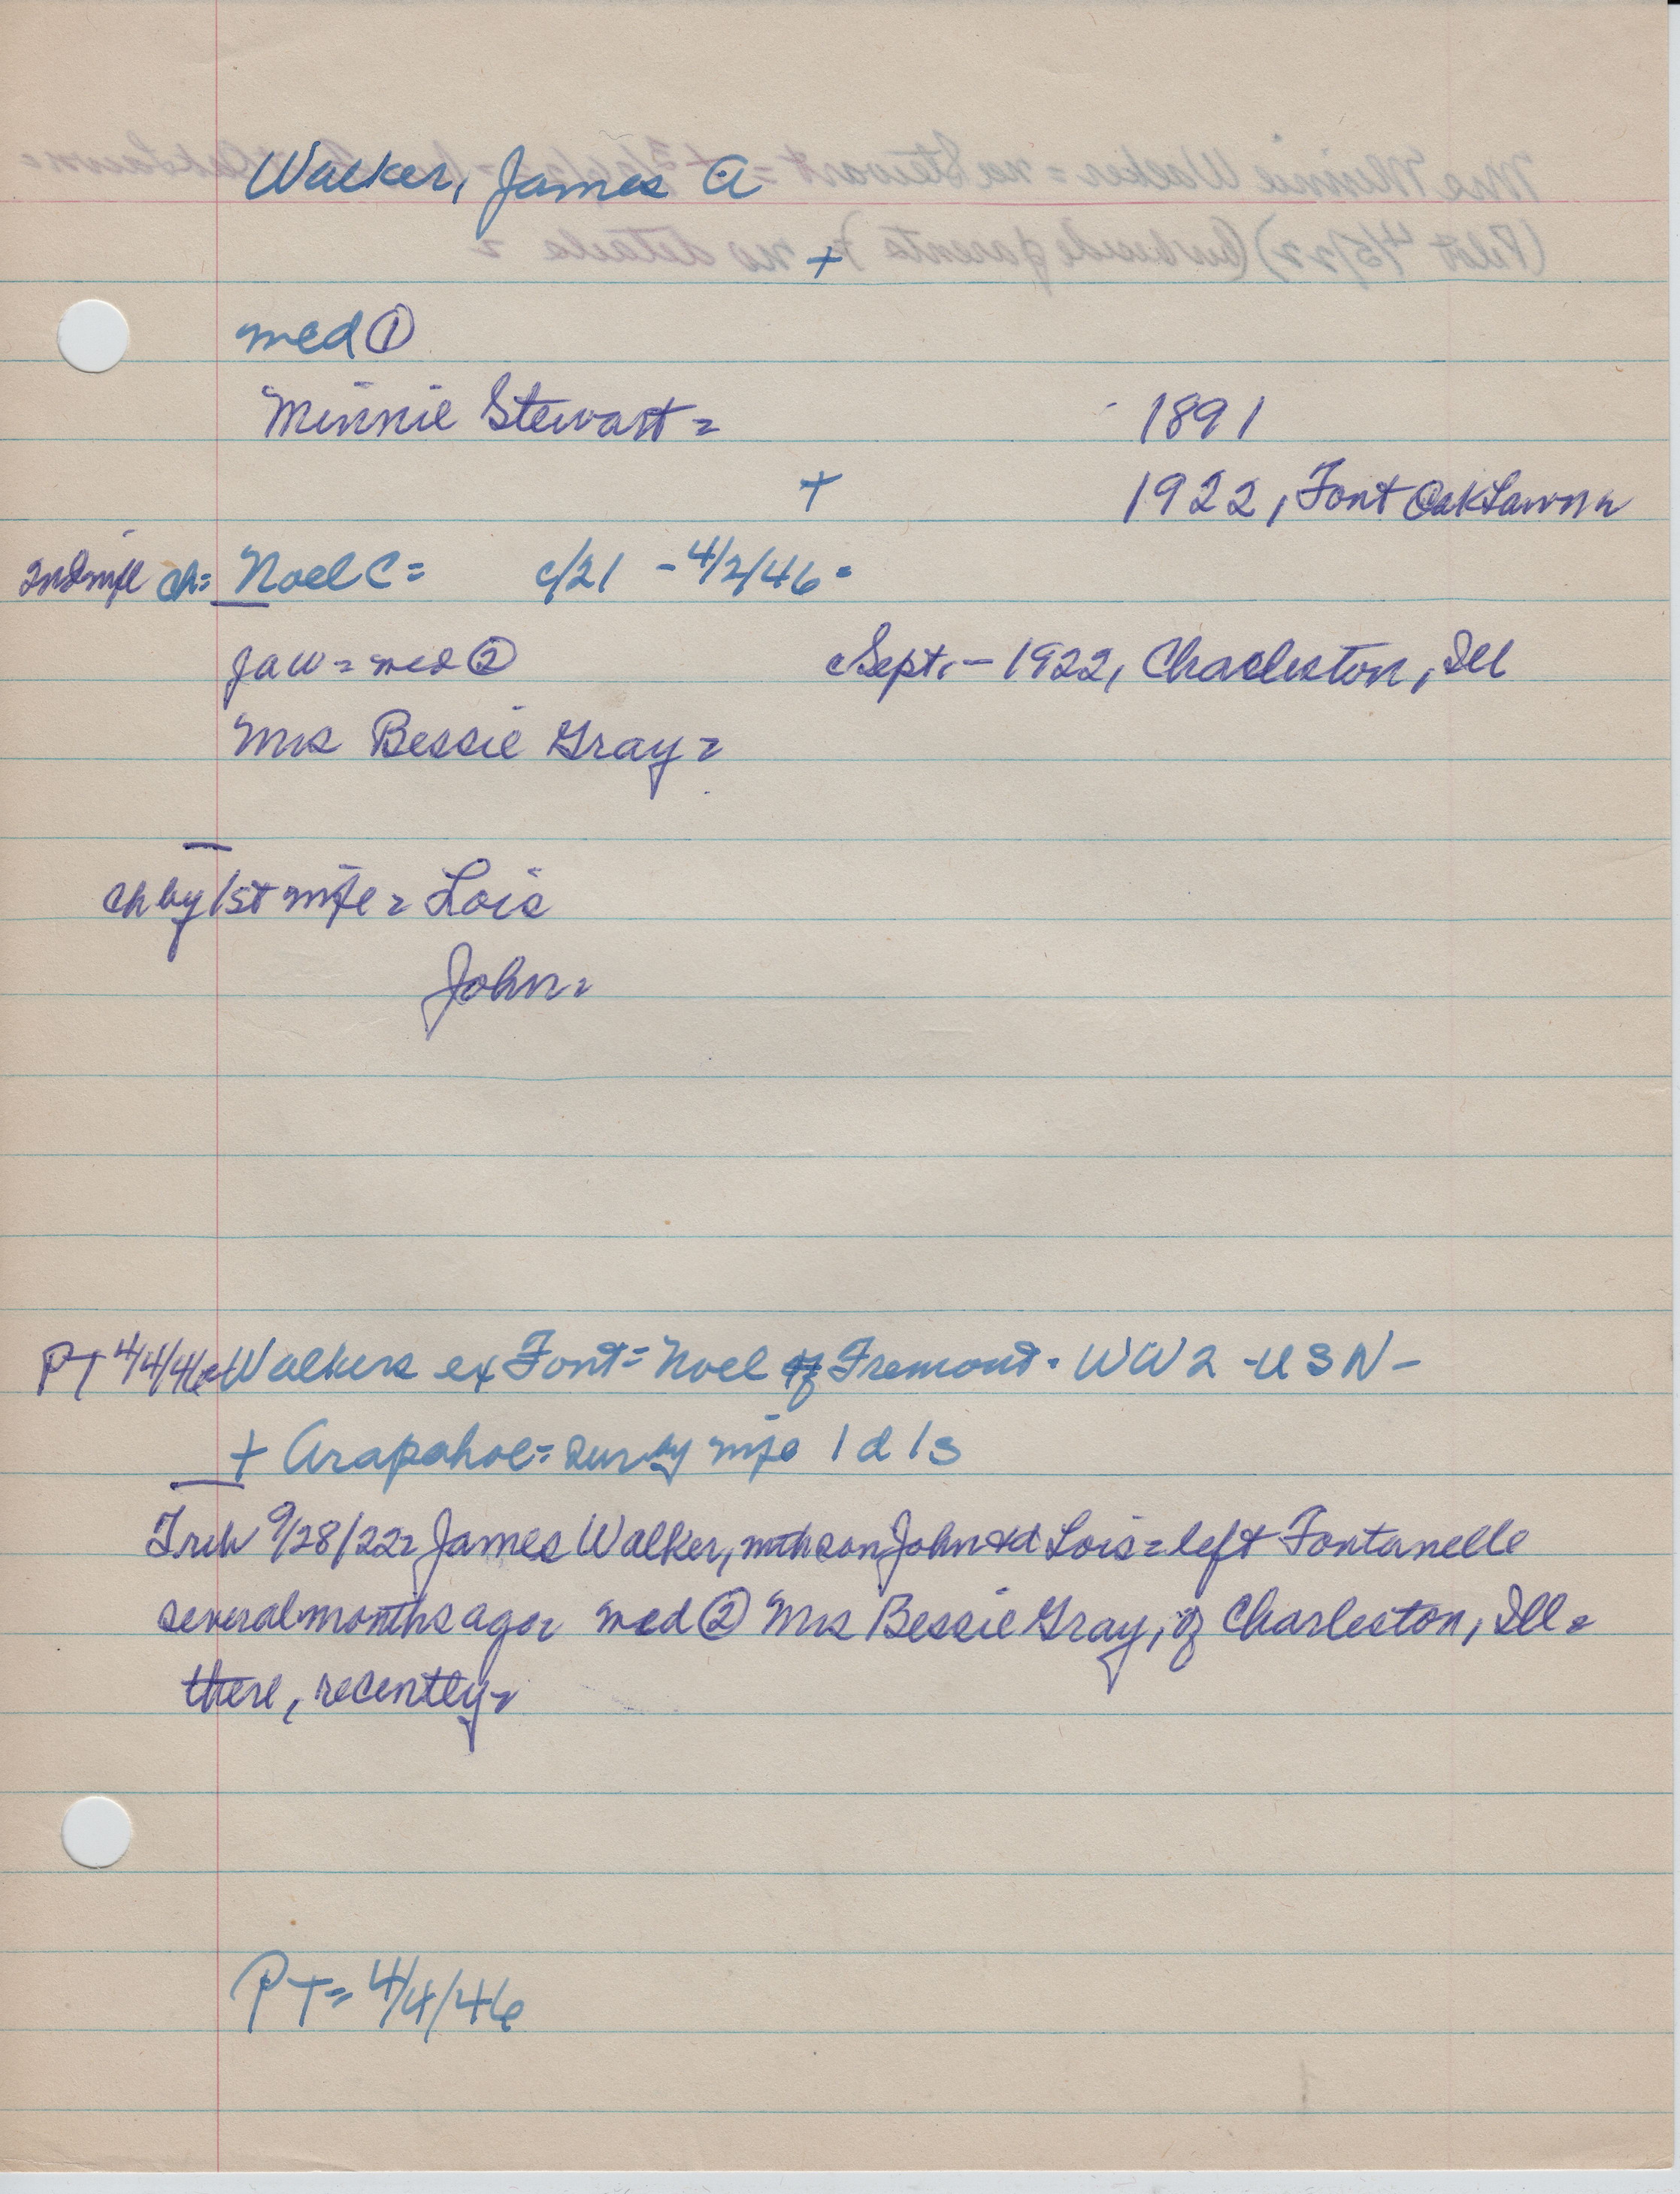 Walker, James A
+
med ①
Minnie Stewart = 1891
+ 1922, Font Oaklawn
2nd wife ch= Noel C = c/21 - 4/2/46 =
JAW = med ② Sept. - 1922, Charleston, Ill
Mrs Bessie Gray =
ch by 1st wife = Lois
John =
PT 4/4/46 = Walkers ex Font = Noel of Fremont - WW2 - USN -
+ Arapahoe = sur by wife 1 d 1 s
9/28/22 = James Walker, with son John & d Lois = left Fontanelle
several months ago = med ② Mrs Bessie Gray, of Charleston, Ill =
there, recently =
PT = 4/4/46